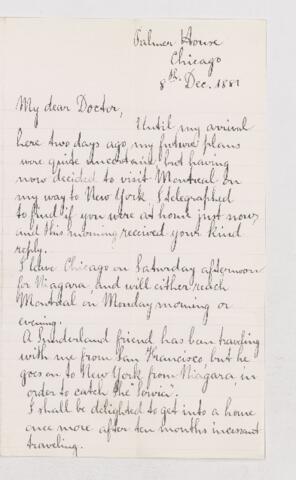 Palmer House
Chicago
8th. Dec. 1881
My dear Doctor,
Until my arrival
here two days ago, my future plans
were quite uncertain, but having
now decided to visit Montreal on
my way to New York, I telegraphed
to find if you were at home just now,
and this morning received your kind
reply.
I leave Chicago on Saturday afternoon
for Niagara, and will either reach
Montreal on Monday morning or
evening.
A Sunderland friend has been traveling
with me from San Francisco, but he
goes on to New York from Niagara, in
order to catch the "Servia".
I shall be delighted to get into a home
once more after ten months incessant
traveling.